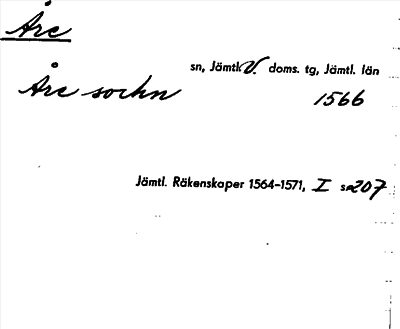 Åre
sn, Jämtl. V. doms. tg, Jämtl. län
Åre sochn
1566
Jämtl. Räkenskaper 1564-1571, I s. 207